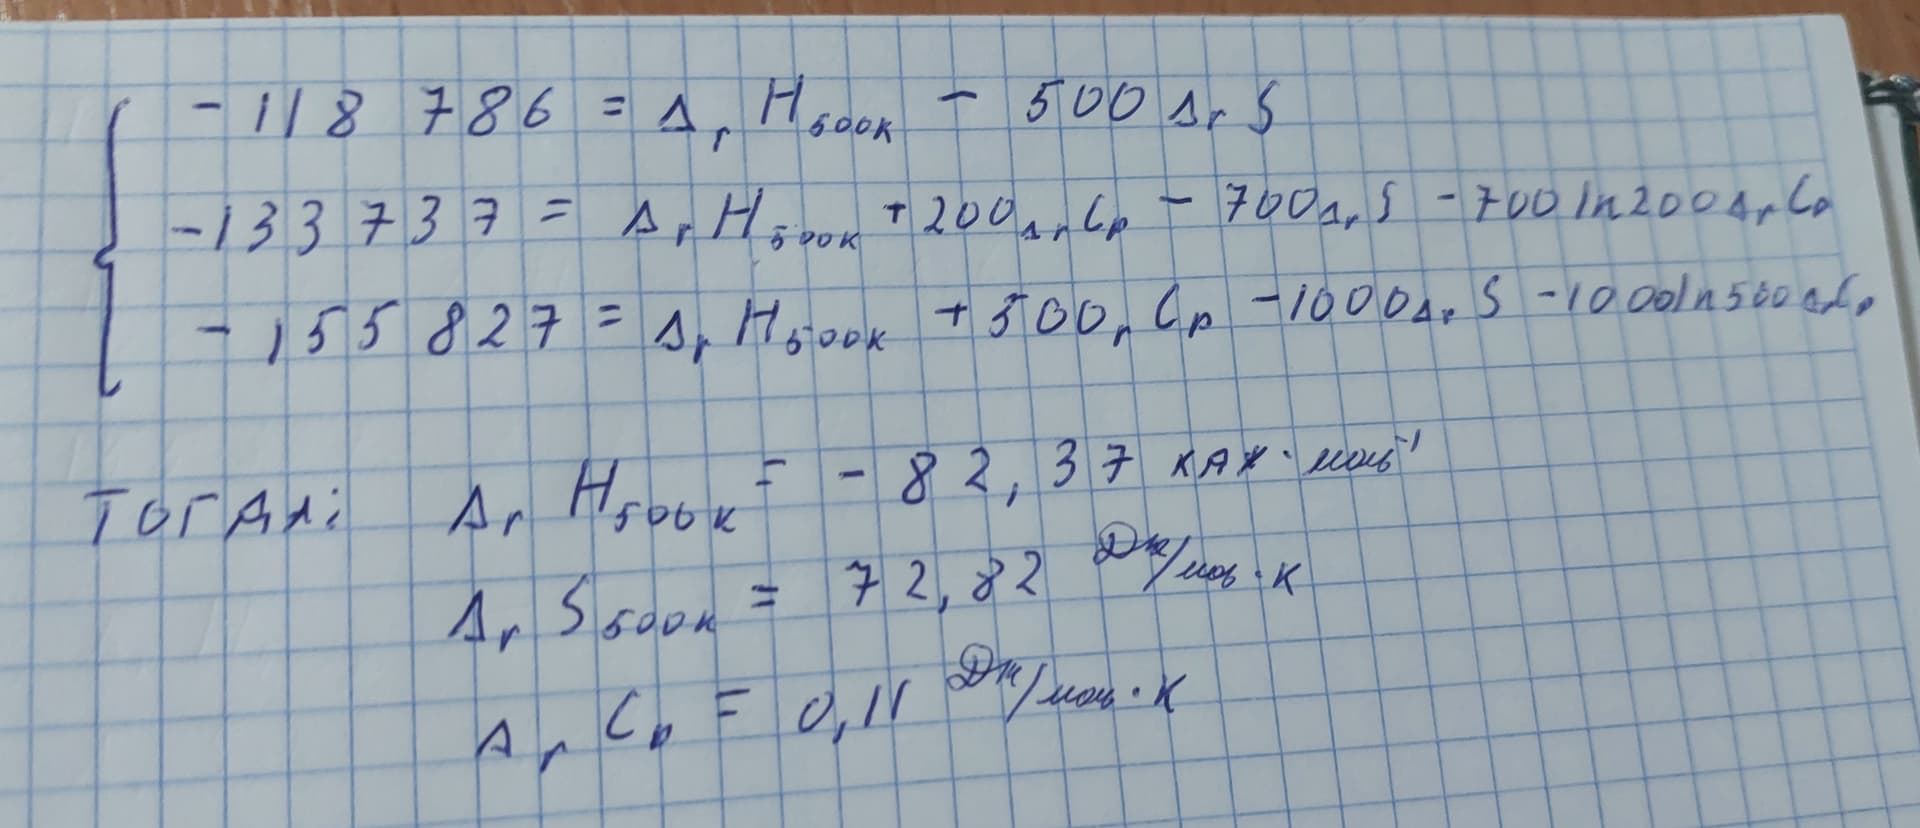 -118 786 = Δr H500K - 500 Δr S
-133 737 = Δr H500K + 200 Δr Cp - 700 Δr S - 700 ln 200 Δr Cp
-155 827 = Δr H500K + 500 r Cp - 1000 Δr S - 1000 ln 500 Δr Cp
ТОГДА: Δr H500K = - 82,37 кДж · моль⁻¹
Δr S500K = 72,82 Дж/моль · К
Δr Cp = 0,11 Дж/моль · К